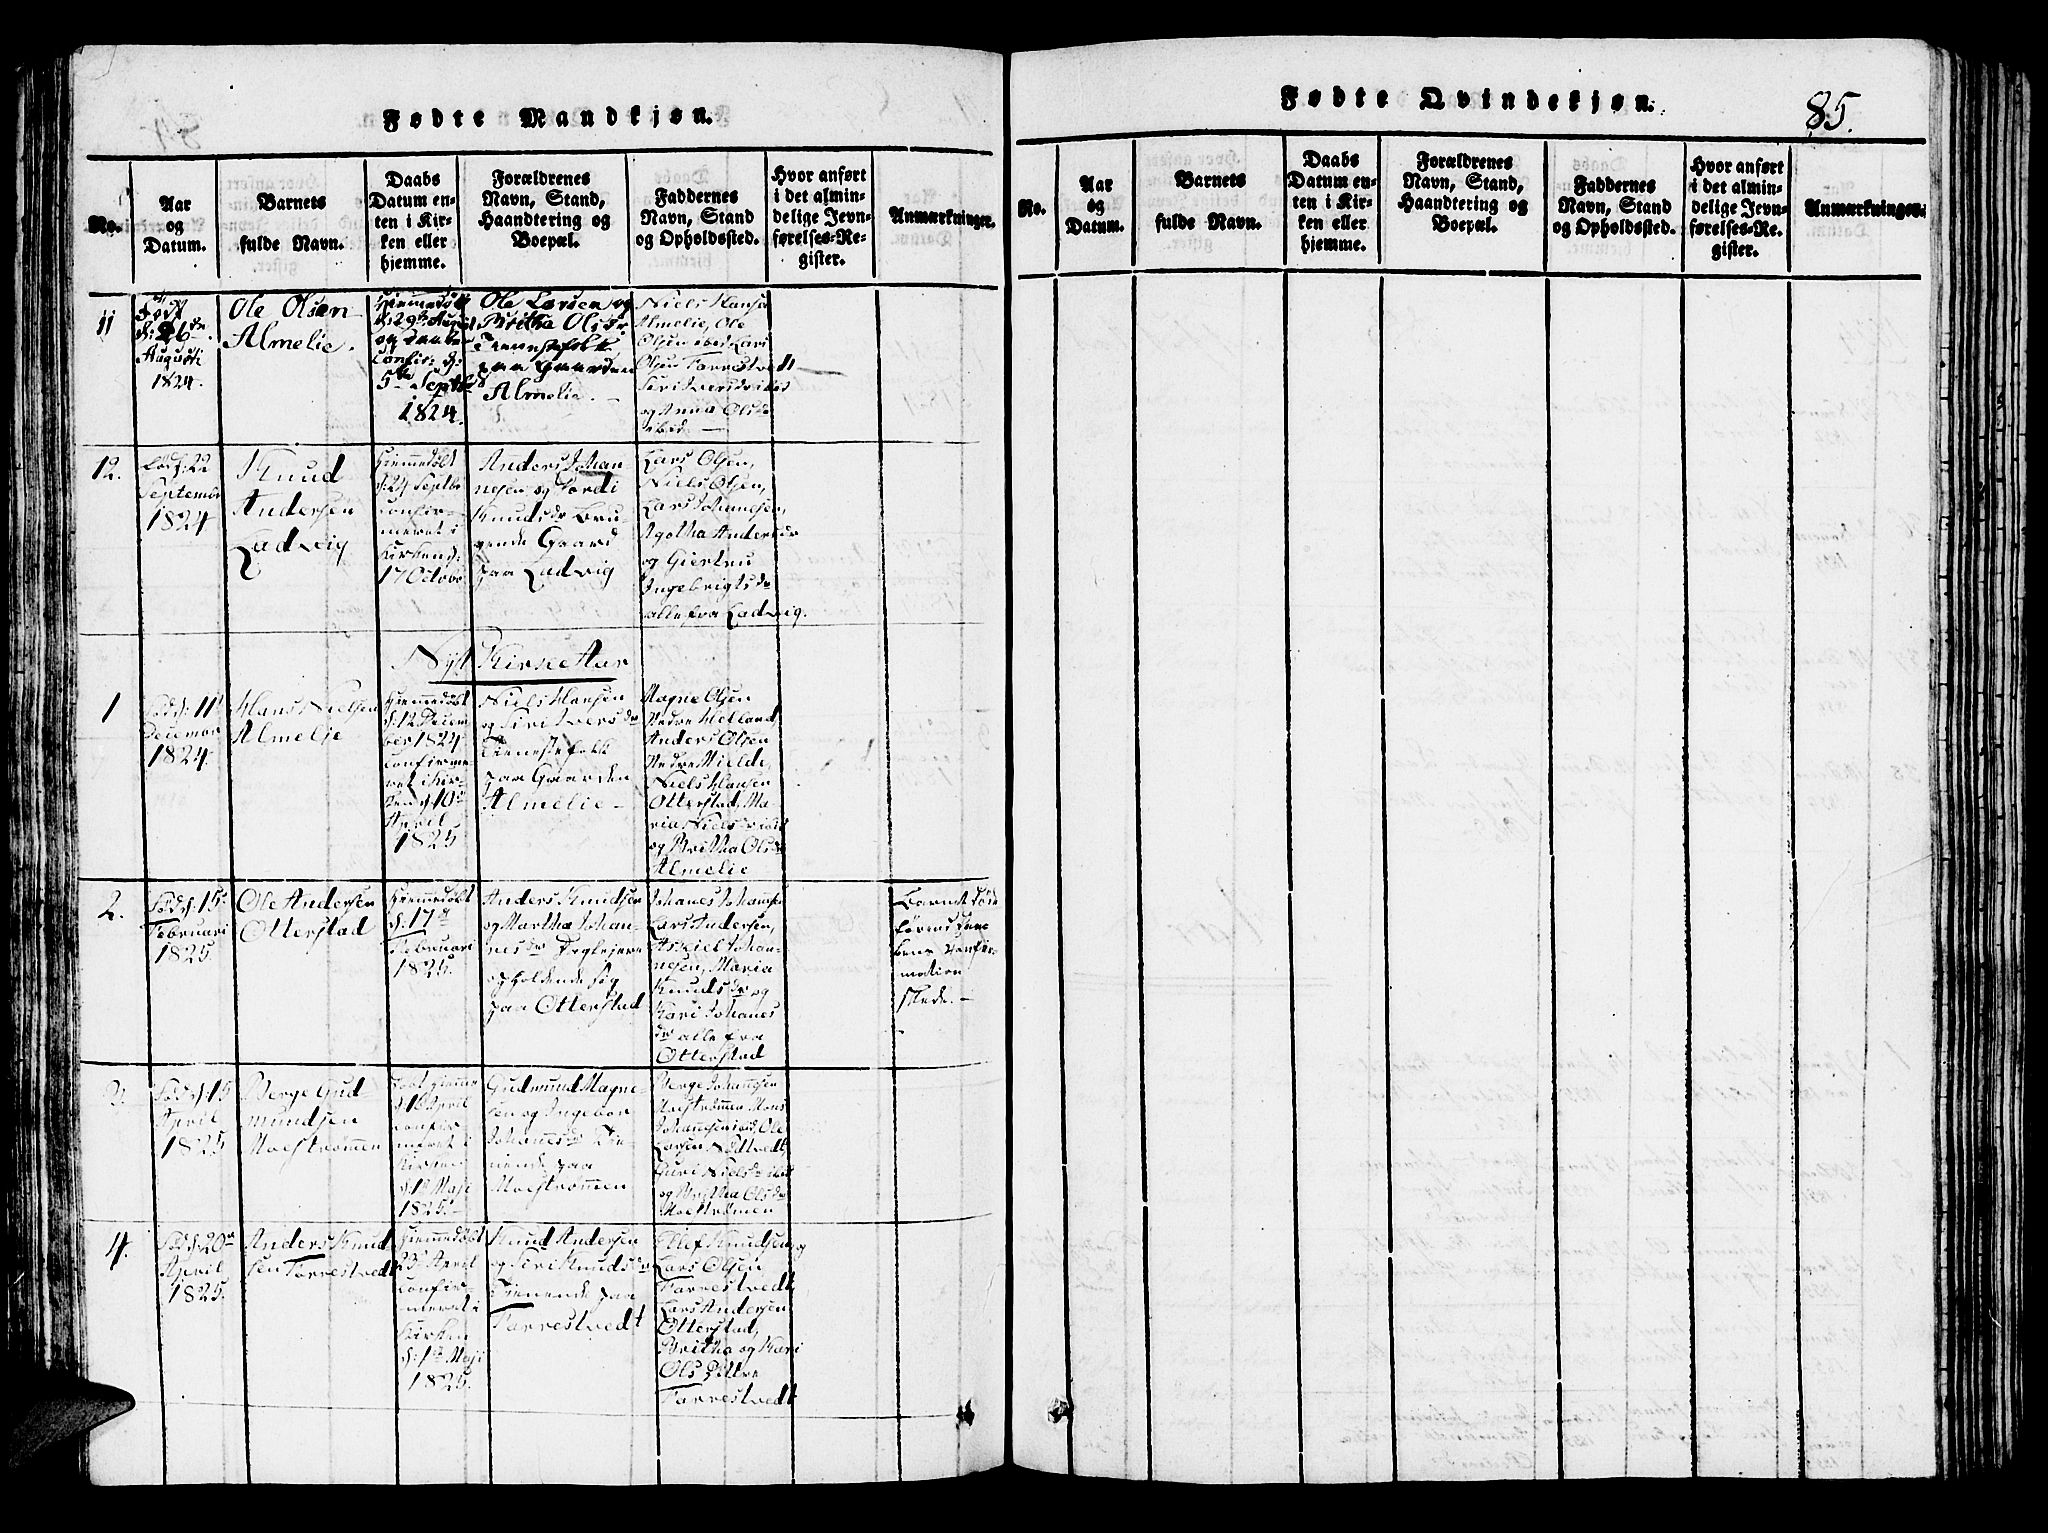 Fødte Mandkjøn.
No.
Aar
og
Datum.
Barnets
fulde Navn.
Daabs
Datum en-
ten i Kir-
ken eller
hjemme.
Forældrenes
Navn, Stand,
Haandtering og
Boepæl.
Faddernes
Navn, Stand
og Opholdssted.
Hvor anført
i det almin-
delige Jevn-
førelses-Re-
gister.
Anmærkninger.
11
Født
d: 26de
Augusti
1824.
Ole Olsen
Almelie.
Hiemmedøbt
d: 29de August
og Daaben
Confir: d:
5te Septbr
1824.
Ole Larsen og
Britha Olsdr.
Tienestefolk
paa Gaarden
Almelie.
Niels Hansen
Almelie, Ole
Olsen ibed Lars
Olsen Farrestvedt
Siri Iversdr ibid
og Anna Olsdr
ibid.
12.
Fød d: 22
Septembr
1824
Knud
Andersen
Ladvig
Hiemmedøbt
d: 24 Septbr
Confir-
meret i
Kirken d:
17 Octobr
Anders Johan-
nesen og Jordi
Knudsdr Bru-
gende Gaard
paa Ladvig
Lars Olsen,
Niels Olsen,
Lars Johannesen,
Agotha Andersdr
og Giertru
Ingebrigtsdr
alle fra Ladvig.
Nyt Kirke Aar
1
Fød d: 11te
Decembr
1824.
Hans Nielsen
Almelie
Hiemmedøbt
d: 12 Decem
ber 1824
Confirme
ret i Kir-
ken d: 10de
April
1825
Niels Hansen
og Siri Iversdr
Tienestefolk
paa Gaarden
Almelie
Magne Olsen
Nedre Helland,
Anders Olsen
Nedre Mielde,
Niels Hansen
Otterstad, Ma-
ria Nielsdr ibid
og Britha Olsdr
Almelie
2.
Fød d: 15de
Februari
1825.
Ole Andersen
Otterstad
Hiemmedøbt
d: 17de
Februari
1825.
Anders Knudsen
og Martha Johan-
nesdr
opholdende sig
paa Otterstad
Johanes Johannesen
Lars Andersen,
Askiel Johan-
nesen, Maria
Knudsdr og
Kari Johanes
dr alle fra
Otterstad
Barnet døde
førend Daa
bens Confir-
mation
skede.
3.
Fød d: 15
April
1825
Berge Gud-
mundsen
Moestrømmen
Døbt hiemme
d: 16 April
Confir-
meret i
Kirken
d: 1te Maji
1825.
Gudmund Magne-
sen og Ingebor
Johannesdr Tie-
nende paa
Moestrømmen
Berge Johannesen
Moestrømmen Mons
Johannesen ibid, Ole
Larsen Nødtvedt,
Guri Nielsdr ibid
og Britha Olsdr
Moestrømen
4.
Fød d: 20de
April
1825.
Anders Knud
sen Farrestvedt
Hiemmedøbt
23de April
Confir-
meret i
Kirken
d: 1te Maji
1825.
Knud Andersen
og Siri Knudsdr
Tienende paa
Farrestvedt
Ellef Knudsen og
Lars Olsen
Farrestvedt,
Lars Andersen
Otterstad,
Britha og Kari
Ols Døttre
Farrestvedt
Fødte Qvindekjøn.
85.
No.
Aar
og
Datum.
Barnets
fulde Navn.
Daabs
Datum en-
ten i Kir-
ken eller
hjemme.
Forældrenes
Navn, Stand,
Haandtering og
Boepæl.
Faddernes
Navn, Stand
og Opholdssted.
Hvor anført
i det almin-
delige Jevn-
førelses-Re-
gister.
Anmærkninger.